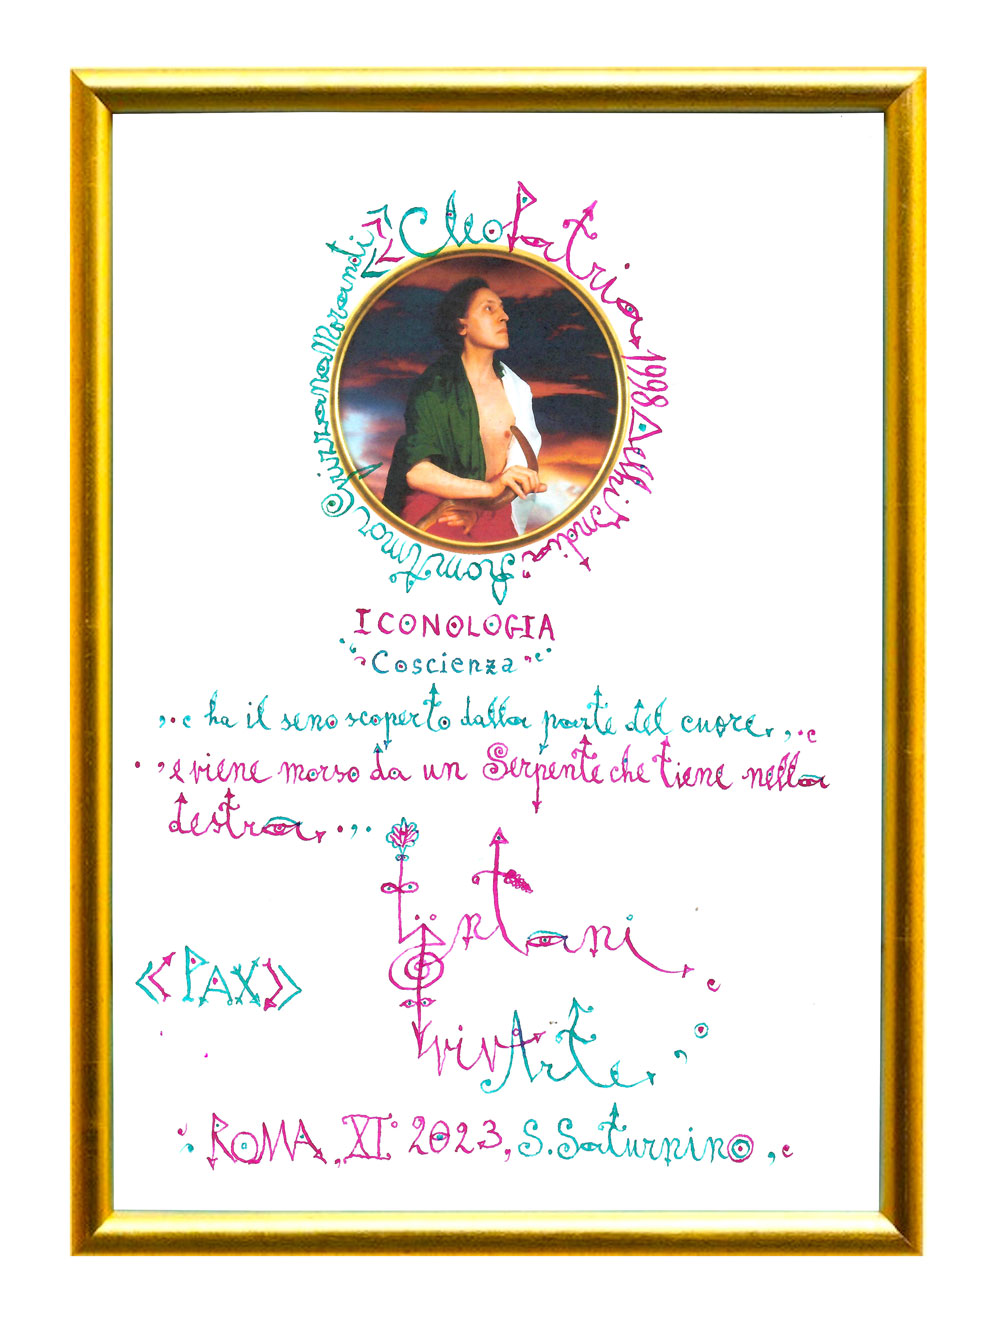 <<CleoPatria 1998 Delhi India
from Amor
Morandi
ICONOLOGIA
Coscienza
ha il seno scoperto dalla parte del cuore,
e viene morso da un Serpente che tiene nella
destra,
<<PAX>>
vivArte,
ROMA, XI° 2023, S. Saturnino,